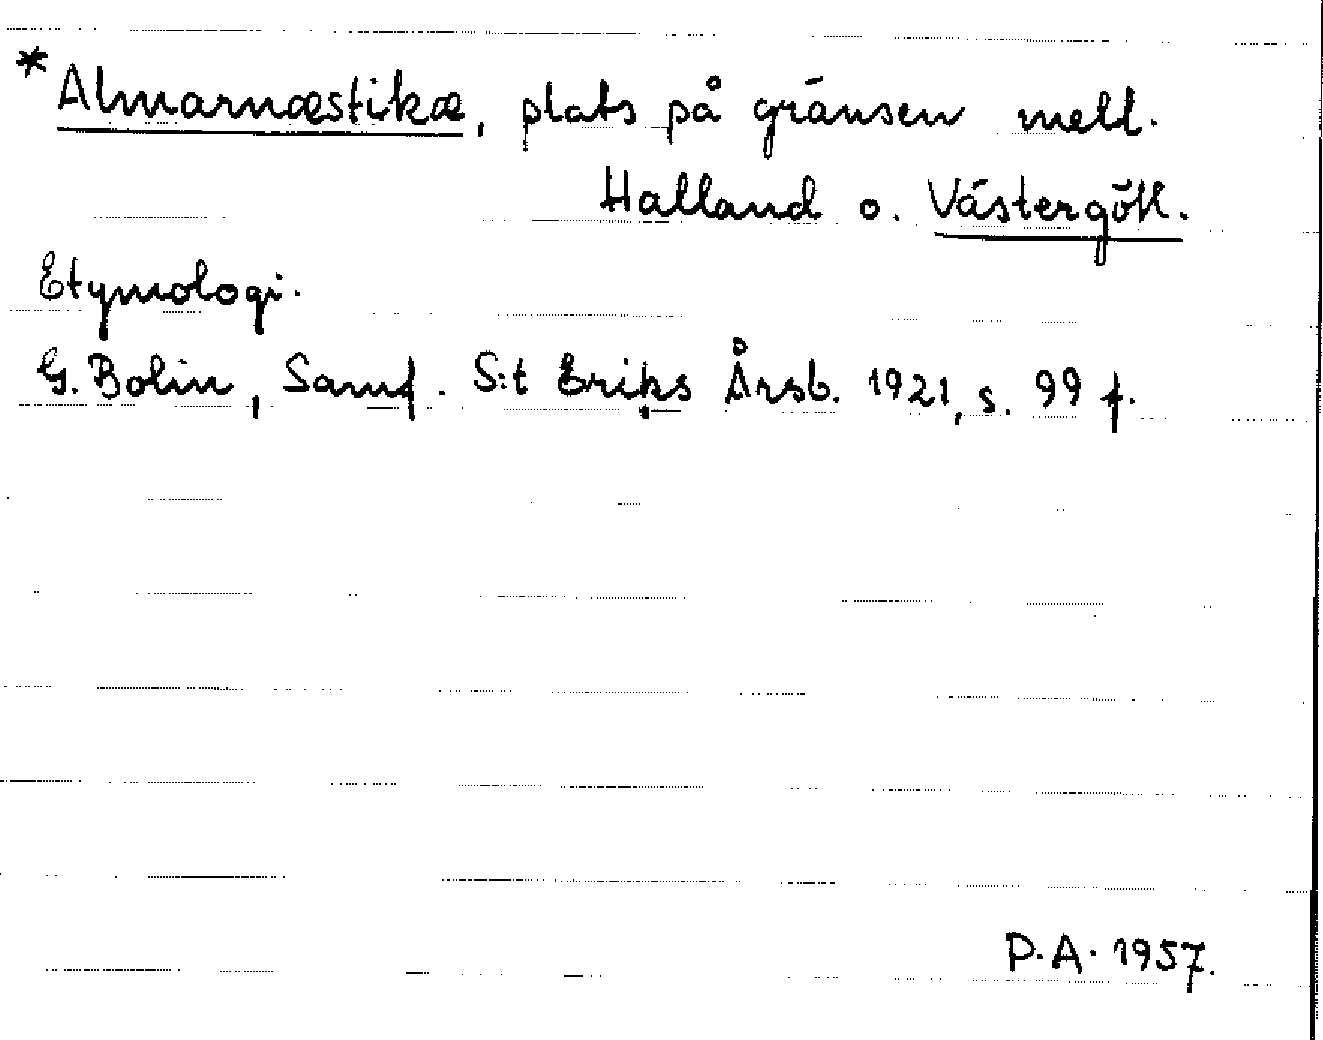 *Almarnæstikæ, plats på gränsen mell.
Halland o. Västergötl.
Etymologi.
G. Bolin, Samf. S:t Eriks Årsb. 1921, s. 99 f.
P.A. 1957.